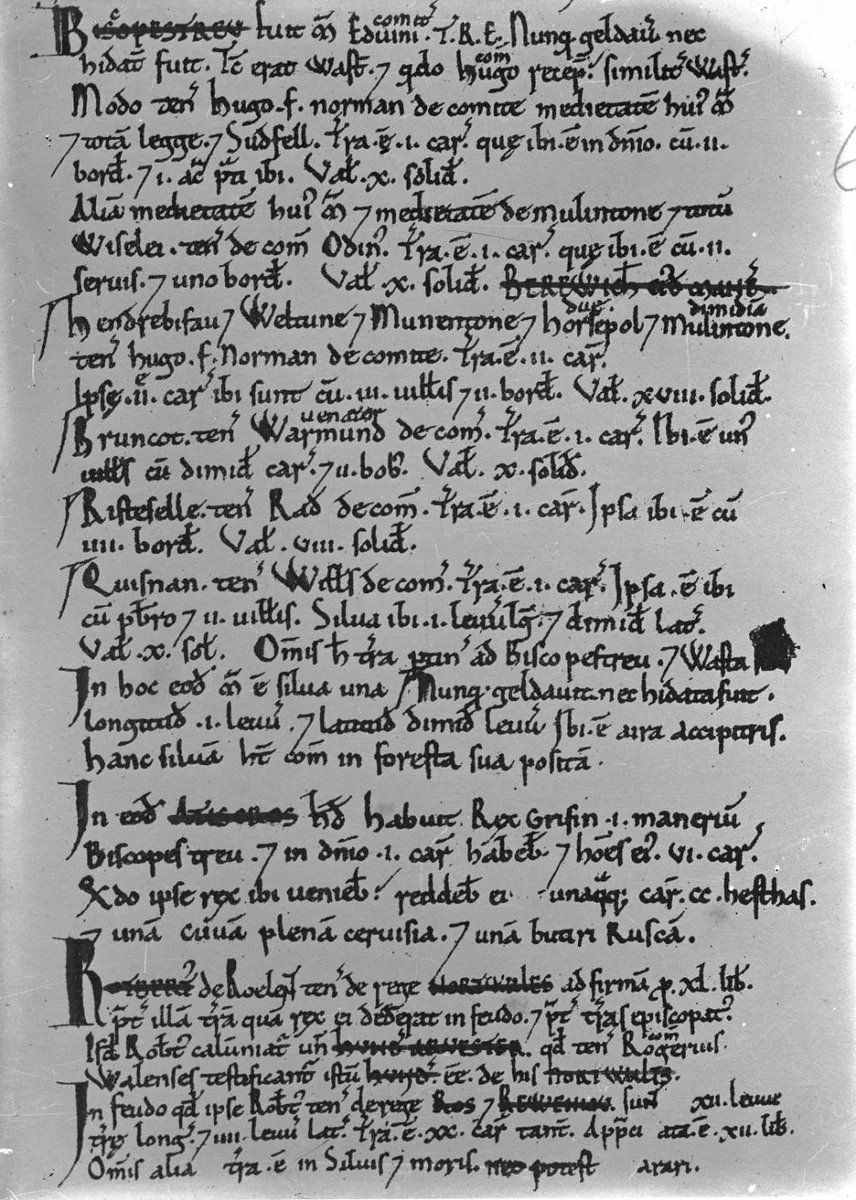 BISCOPESTREU fuit m̃ Eduuini comit̃. T.R.E. Nunq̃ geldau nec
hidat̃ fuit. Tc̃ erat Wast̃. ⁊ qdo hugo com̃ recep̃: similit̃ Wast̃.
Modo ten̄ hugo .f. norman de comite medietatē hui' m̃
⁊ totā legge. ⁊ Sudfell. t̃ra .ē. i. car̃. quę ibi .ē in dn̄io. cū .ii.
bord̃. ⁊ i. ac̃ p̃ti ibi. Val̃ .x. solid̃.
Aliā medietatē hui' m̃ ⁊ medietatē de mulintone ⁊ totū
Wiselei. ten̄ de com̃ Odin̄. t̃ra .ē. i. car̃. quę ibi .ē cū .ii.
seruis. ⁊ uno bord̃. Val̃ .x. solid̃. BEREWICH
hendrebifau ⁊ Weltune ⁊ Munentone ⁊ horsepol ⁊ dimidia Mulintone.
ten̄ hugo .f. Norman de comite. t̃ra .ē. ii. car̃.
Ipsę .ii. car̃ ibi sunt cū .iii. uill̃is ⁊ ii. bord̃. Val̃ .xviii. solid̃.
Bruncot. ten̄ Warmund uenator de com̃. t̃ra .ē. i. car̃. Ibi .ē un'
uill̃s cū dimid̃ car̃. ⁊ ii. bob̃. Val̃ .x. solid̃.
Risteselle. ten̄ Rad̃ de com̃. t̃ra .ē. i. car̃. Ipsa ibi .ē cū
iiii. bord̃. Val̃ .viii. solid̃.
Quisnan. ten̄ Will̃s de com̃. t̃ra .ē. i. car̃. Ipsa .ē ibi
cū pb̃ro ⁊ ii. uill̃is. Silua ibi .i. leuu lg̃. ⁊ dimid̃ lat̃.
Val̃ .x. sol̃. Om̃is h̃ t̃ra ptin̄ ad Biscopestreu. ⁊ Wasta
In hoc eod̃ m̃ ē silua una Nunq̃ geldauit nec hidata fuit.
longitud̃ .i. leuu. ⁊ latitud̃ dimid̃ leuu Ibi .ē aira accipitris.
hanc siluā ht̃ com̃ in foresta sua positā.
In eod̃ ATISCROS hd̃ habuit Rex Grifin .i. maneriū
Biscopestreu. ⁊ in dn̄io .i. car̃ habeb̃ ⁊ hōes ei'. vi. car̃.
Qdo ipse rex ibi uenieb̃: reddeb̃ ei unaq̃q; car̃. cc. hesthas.
⁊ unā cuuā plenā ceruisia. ⁊ unā butiri Ruscā.
ROTBERT' de Roelent ten̄ de rege NORTWALES ad firmā p .xl. lib̃.
p̃t illā t̃rā quā rex ei dederat in feudo. ⁊ p̃t t̃ras episcopat'.
Isd̃ Rob̃t' calūniat̃ un̄ hund̃ ARUESTER. qd̃ ten̄ Rogerius com̃.
Walenses testificant̃ istū hund̃. ee. de his NORTWALES.
In feudo qd̃ ipse Rob̃t' ten̄ de rege Ros ⁊ REWENIOU. sun̄t xii. leuue
t̃rę long̃. ⁊ iiii. leuu lat̃. t̃ra .ē. xx. car̃ tant̃. App̃ciata .ē. xii. lib̃.
Om̃is alia t̃ra .ē in Siluis ⁊ moris. nec potest arari.